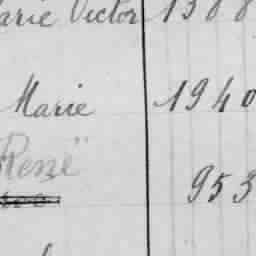 arie Victor 1388
Marie 1940
René"
953